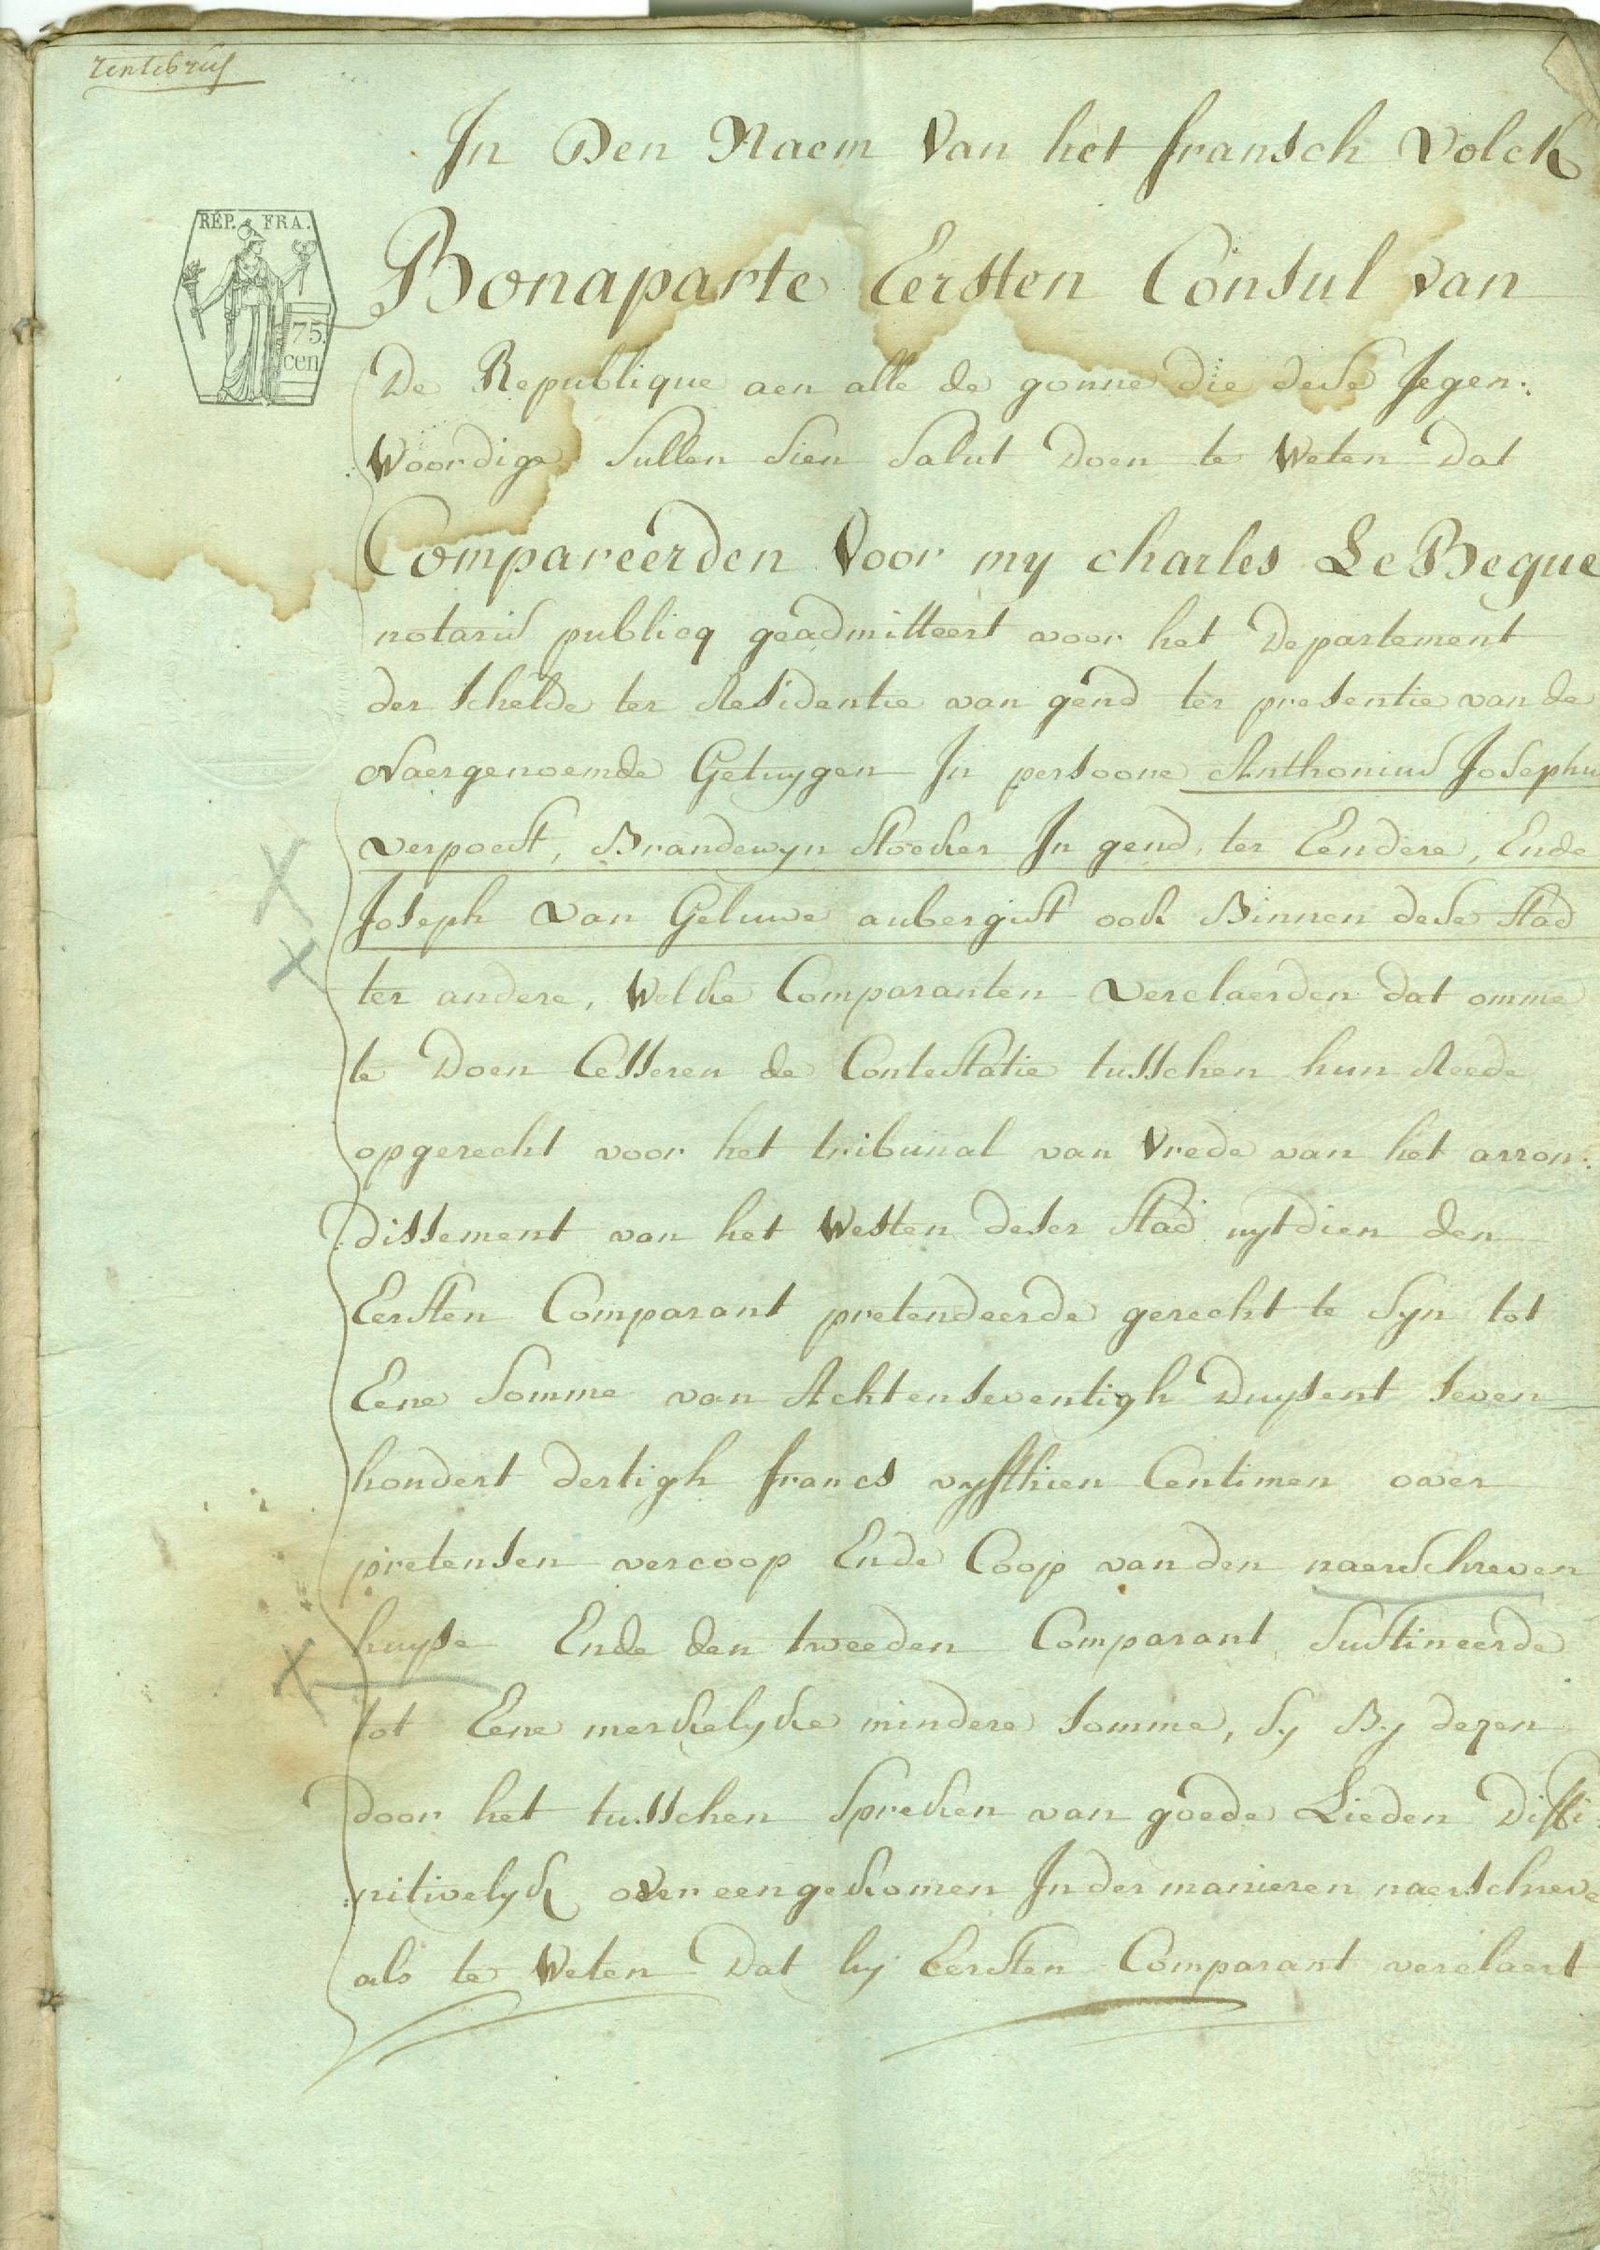 rentebrief
In Den Naem Van het fransch Volck
RÉP. FRA.
75.
cen
Bonaparte Eersten Consul van
De Republique aen alle de gonne die dese Jegen:
Woordige sullen sien Salut Doen te Weten Dat
Compareerden Voor my charles Le Begue
notaris publicq geadmitteert voor het Departement
der schelde ter Residentie van gend ter presentie van de
Naergenoemde Getuygen In persoone Anthonius Josephus
verpoest, Brandewyn stoeker In gend, ter Eendere, Ende
Joseph Van Geluwe aubergist ook Binnen dese stad
ter andere, Welke Comparanten verclaerden dat omme
te Doen Cesseren de Contestatie tusschen hun Reede
opgerecht voor het tribunal van Vrede van het arron:
dissement van het Westen deser stad uytdien den
Eersten Comparant pretendeerde gerecht te syn tot
Eene Somme van Achtenseventigh Duysent seven
hondert dertigh francs vyfthien Centimen over
pretensen vercoop Ende Coop van den naerschreven
huyse Ende den tweeden Comparant sustineerde
tot Eene merkelyke mindere somme, sy By dezen
door het tusschen spreken van goede Lieden Diffi:
nitivelyk overeengekomen In der manieren naerschreve
als te Weten Dat hy Eersten Comparant verclaert